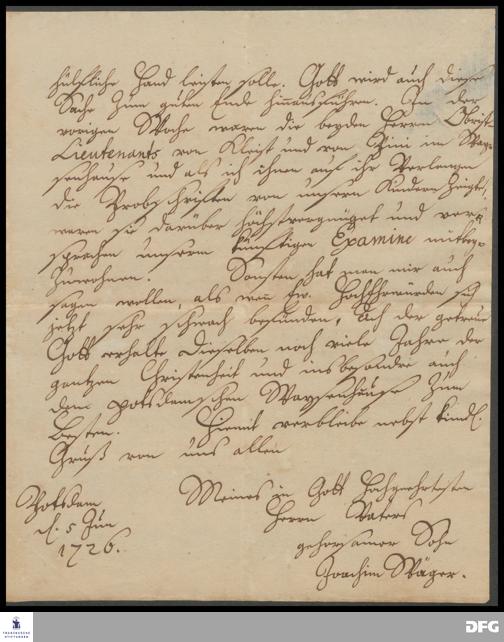 hülfliche Hand leisten solle. Gott wird auch diese
Sache zum guten Ende hinausführen. In der
vorigen Woche waren die beyden Herrn Obrist-
Lieutenants von Kleist und von im Way-
senhause und als ich ihnen auf ihr Verlangen
die Probschriften von unsern Kindern zeigte,
waren sie darüber höchstvergnüget und ver-
sprachen unserm künftigen Examine mit bey-
zuwohnen. Sonsten hat man mir auch
sagen wollen, als wenn Ew. Hochehrwürden sich
jetzt sehr schwach befünden, Ach der getreue
Gott erhalte Dieselben noch viele Jahre der
gantzen Christenheit und insbesondre auch
dem potsdamschen Waysenhause zum
Besten. Hiemit verbleibe nebst kindl.
Gruß von uns allen
Meines in Gott Hochgeehrtesten
Herrn Vaters
Potsdam
d. 5 Jun
1726.
gehorsamer Sohn
Joachim Wäger.
FRANCKESCHE
STIFTUNGEN
DFG